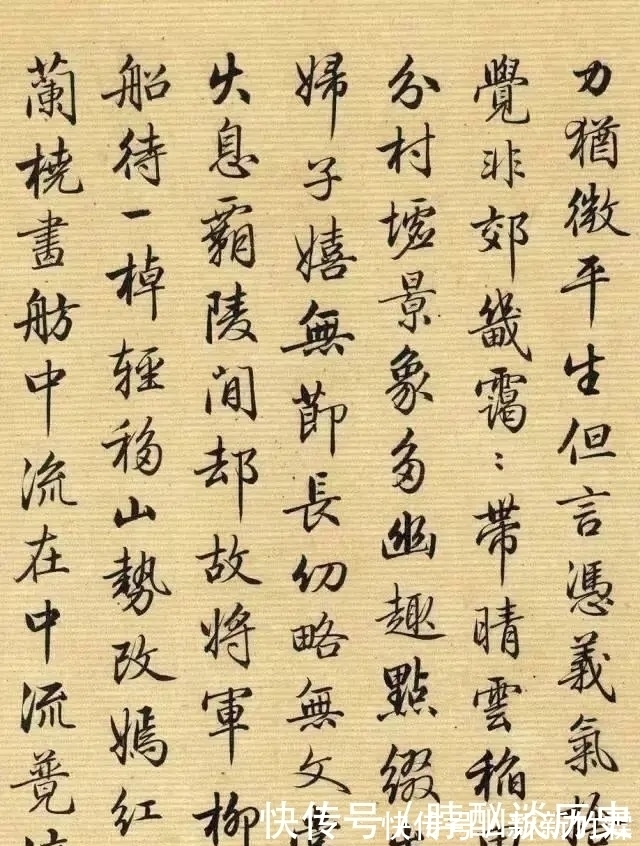 力猶微平生但言憑義氣
覺非郊畿靄〻帶晴雲稲
分村墟景象多幽趣點綴
婦子嬉無節長幼略無文
火息霸陵閒却故將軍柳
船待一棹輕移山勢改嫣紅
蘭橈畫舫中流在中流覽
快传号